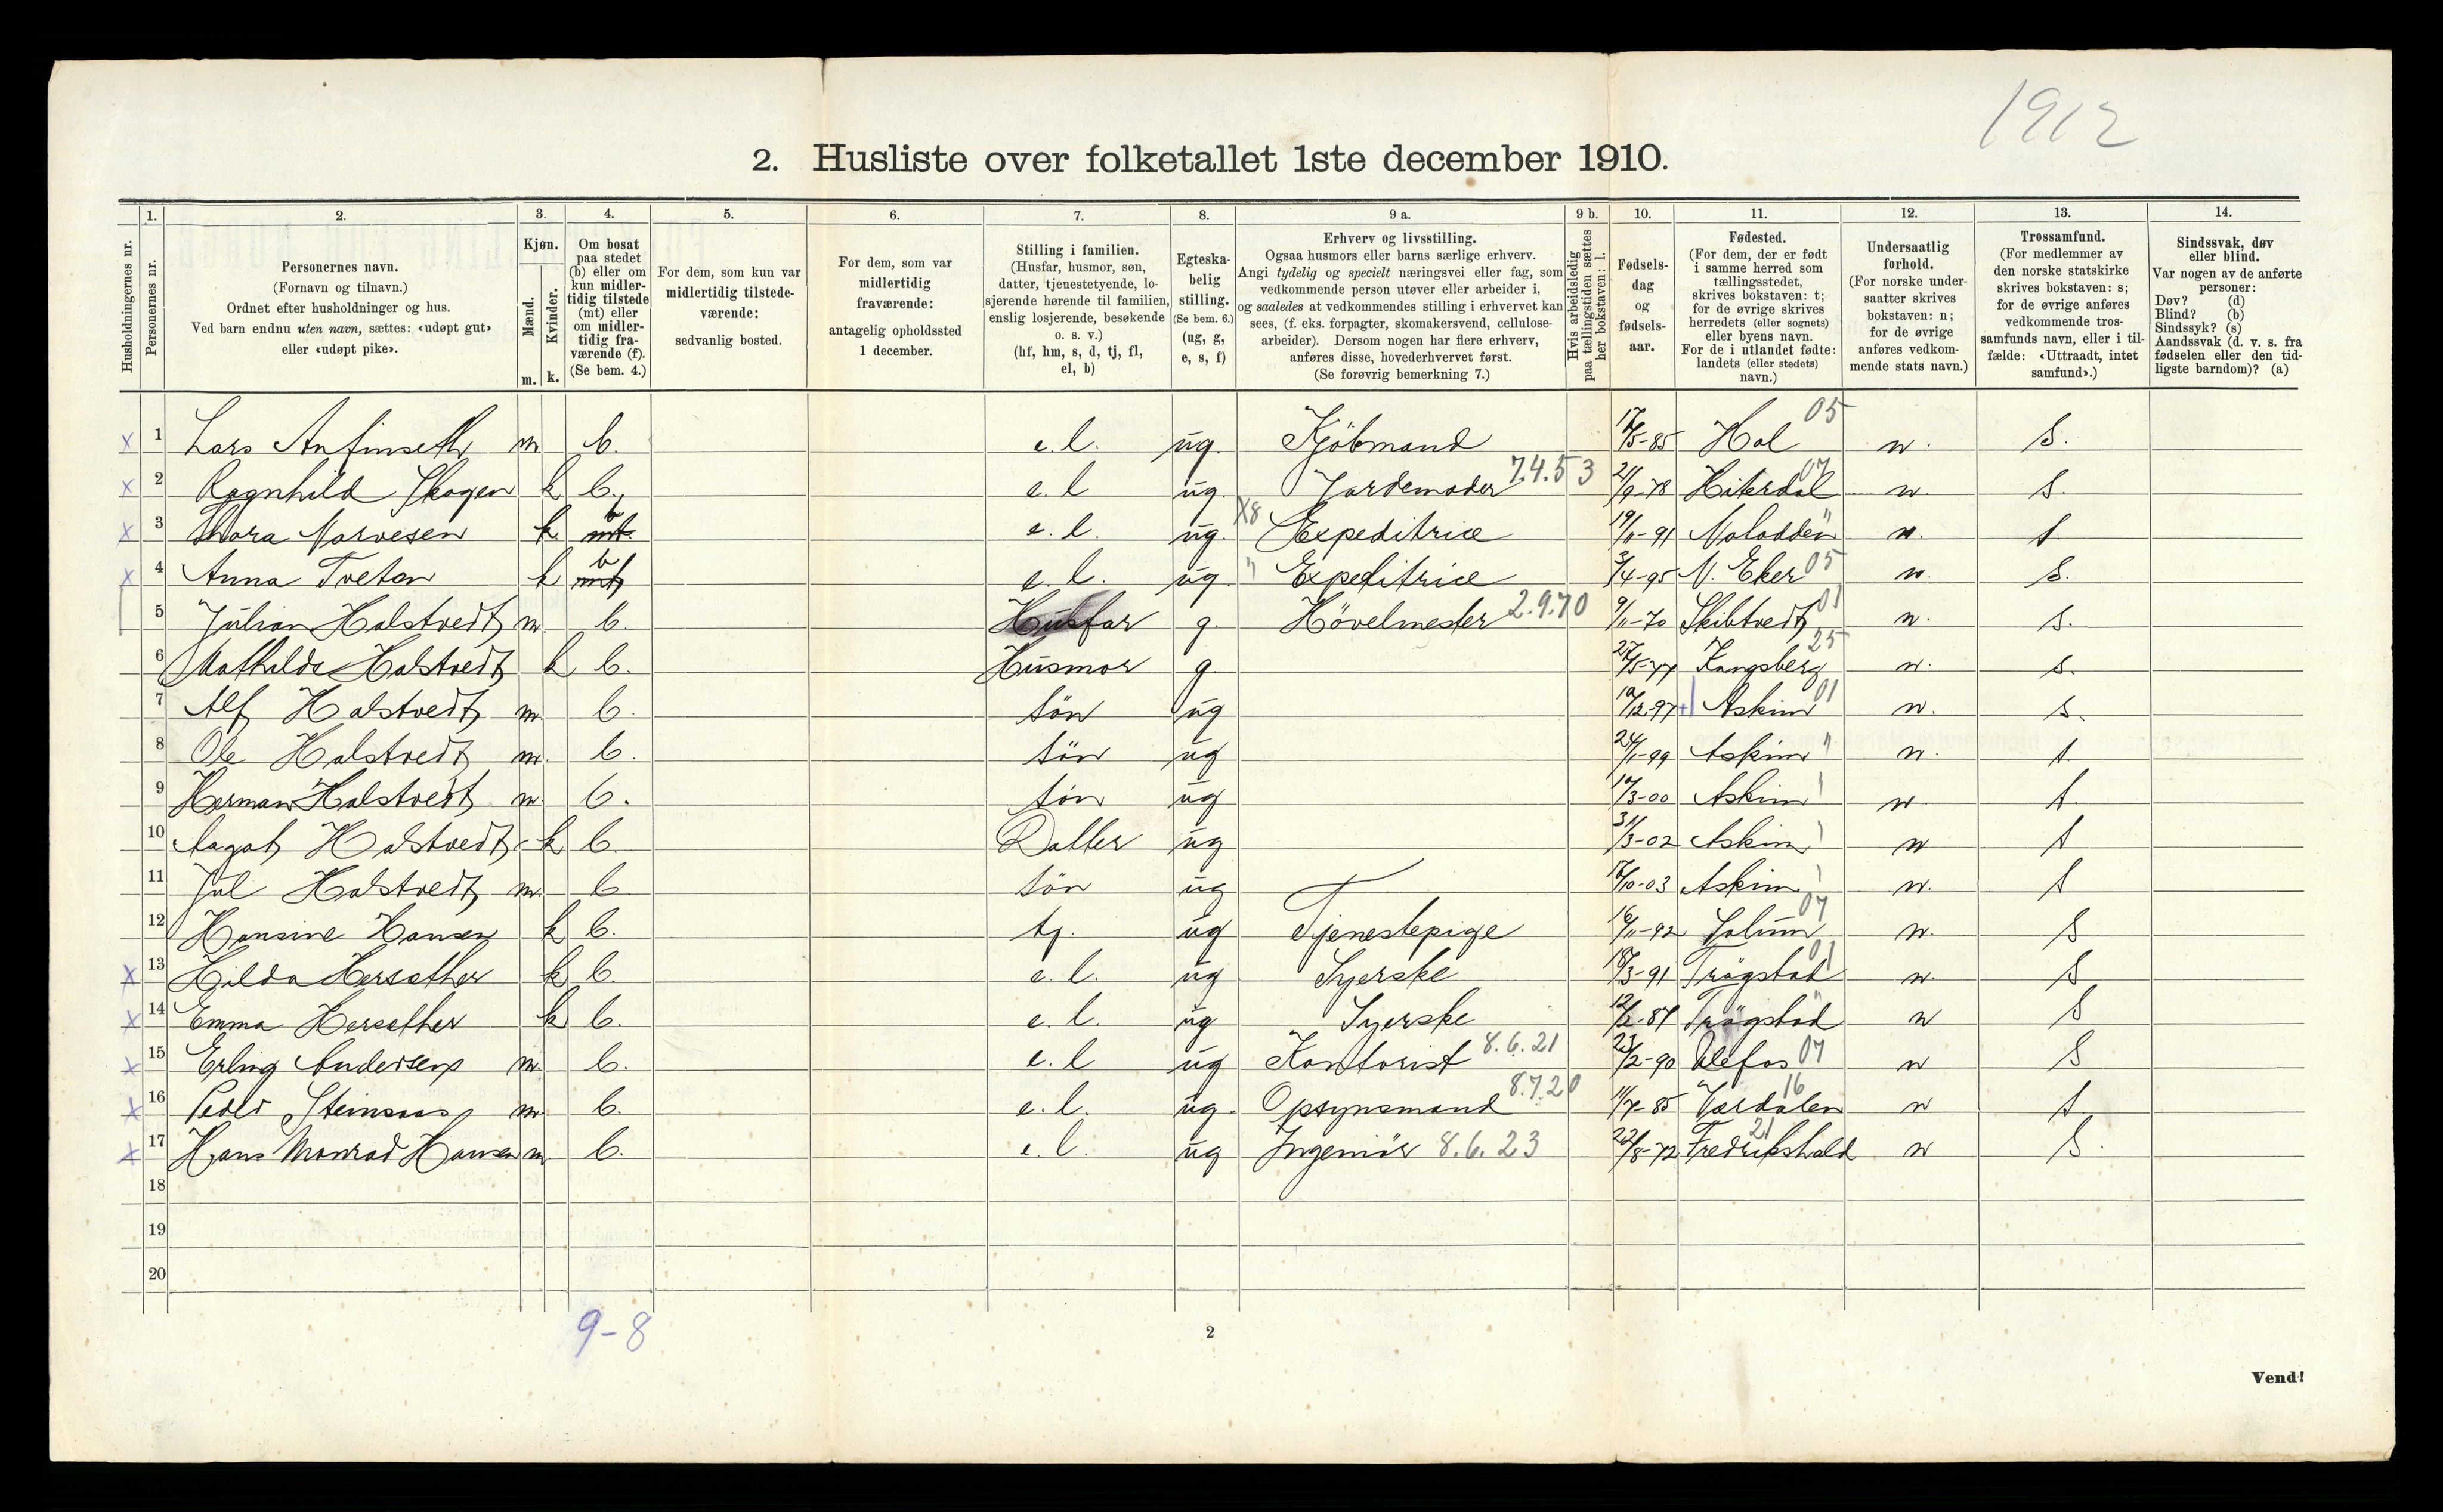 1912
2. Husliste over folketallet 1ste december 1910.
Husholdningernes nr.
1. Personernes nr.
2. Personernes navn. (Fornavn og tilnavn.) Ordnet efter husholdninger og hus. Ved barn endnu uten navn, sættes: «udøpt gut» eller «udøpt pike».
3. Kjøn. Mænd. m. Kvinder. k.
4. Om bosat paa stedet (b) eller om kun midlertidig tilstede (mt) eller om midlertidig fraværende (f). (Se bem. 4.)
5. For dem, som kun var midlertidig tilstedeværende: sedvanlig bosted.
6. For dem, som var midlertidig fraværende: antagelig opholdssted 1 december.
7. Stilling i familien. (Husfar, husmor, søn, datter, tjenestetyende, losjerende hørende til familien, enslig losjerende, besøkende o. s. v.) (hf, hm, s, d, tj, fl, el, b)
8. Egteskabelig stilling. (Se bem. 6.) (ug, g, e, s, f)
9 a. Erhverv og livsstilling. Ogsaa husmors eller barns særlige erhverv. Angi tydelig og specielt næringsvei eller fag, som vedkommende person utøver eller arbeider i, og saaledes at vedkommendes stilling i erhvervet kan sees, (f. eks. forpagter, skomakersvend, cellulosearbeider). Dersom nogen har flere erhverv, anføres disse, hovederhvervet først. (Se forøvrig bemerkning 7.)
9 b. Hvis arbeidsledig paa tællingstiden sættes her bokstaven: l.
10. Fødselsdag og fødselsaar.
11. Fødested. (For dem, der er født i samme herred som tællingsstedet, skrives bokstaven: t; for de øvrige skrives herredets (eller sognets) eller byens navn. For de i utlandet fødte: landets (eller stedets) navn.)
12. Undersaatlig forhold. (For norske undersaatter skrives bokstaven: n; for de øvrige anføres vedkommende stats navn.)
13. Trossamfund. (For medlemmer av den norske statskirke skrives bokstaven: s; for de øvrige anføres vedkommende trossamfunds navn, eller i tilfælde: «Uttraadt, intet samfund».)
14. Sindssvak, døv eller blind. Var nogen av de anførte personer: Døv? (d) Blind? (b) Sindssyk? (s) Aandssvak (d. v. s. fra fødselen eller den tidligste barndom)? (a)
x 1 Lars Anfinseth m b. e. l. ug. Kjöbmand 17/5-85 Hol 05 n. S.
x 2 Ragnhild Skogen k b. e. l ug. Jordemoder 7.4.53 21/9-78 Hiterdal 07 n. S.
x 3 Thora Narvesen k. mt. b e. l. ug. X8 Expeditrice 19/11-91 Notodden " n. s.
x 4 Anna Tveten k mt b e. l. ug. " Expeditrice 3/4-95 N. Eker 05 n. S.
5 Julian Halstvedt m. b. Husfar g. Hövelmester 2.9.70 9/11-70 Skibtvedt 01 n. s.
6 Mathilde Halstvedt k b. Husmor g. 27/5-77 Kongsberg 25 n. s.
7 Alf Halstvedt m. b. sön ug 19/12-97 Askim 01 n. s.
8 Ole Halstvedt m. b. sön ug 24/1-99 Askim " n. s.
9 Herman Halstvedt m. b. sön ug 17/3-00 Askim " n. s.
10 Aagot Halstvedt k b. Datter ug 31/3-02 Askim " n s
11 Jul Halstvedt m. b sön ug 18/10-03 Askim " n. s
12 Hansine Hansen k b. tj. ug Tjenestepige 16/11-92 Solum 07 n. S
x 13 Hilda Hersæther k b. e. l. ug Syerske 18/3-91 Trögstad 01 n. S
x 14 Emma Hersæther k b. e. l. ug Syerske 12/2-87 Trögstad " n S
x 15 Erling Andersen m. b. e. l ug Kontorist 8.6.21 23/2-90 Ulefos 07 n S
x 16 Peder Steinsaas m b. e. l. ug. Opsynsmand 8.7.20 11/7-85 Værdalen 16 n s
x 17 Hans Monrad Hansen m b. e. l. ug Ingeniör 8.6.23 22/8-72 Fredrikshald 21 n S.
18
19
20
9-8
2
Vend!